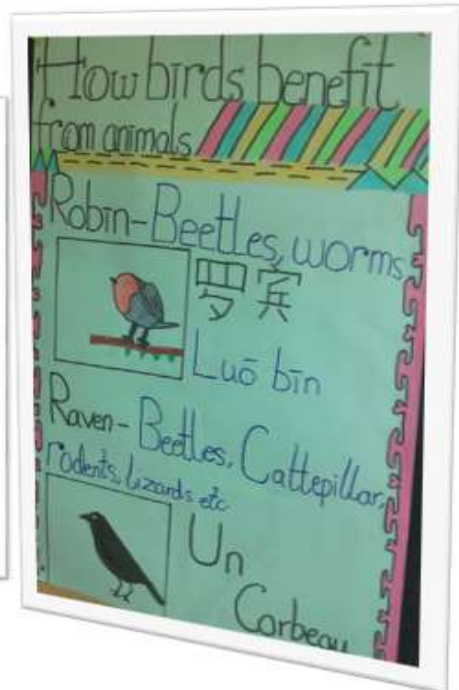 How birds benefit
from animals
Robin-Beetles, worms
罗宾
Luō bīn
Raven- Beetles, Cattepillar,
rodents, lizards etc
Un
Corbeau